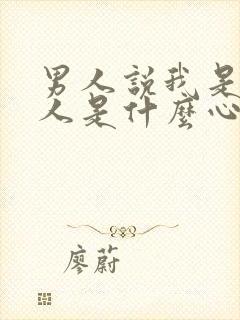 男人說我是
人是什麼心
廖蔚